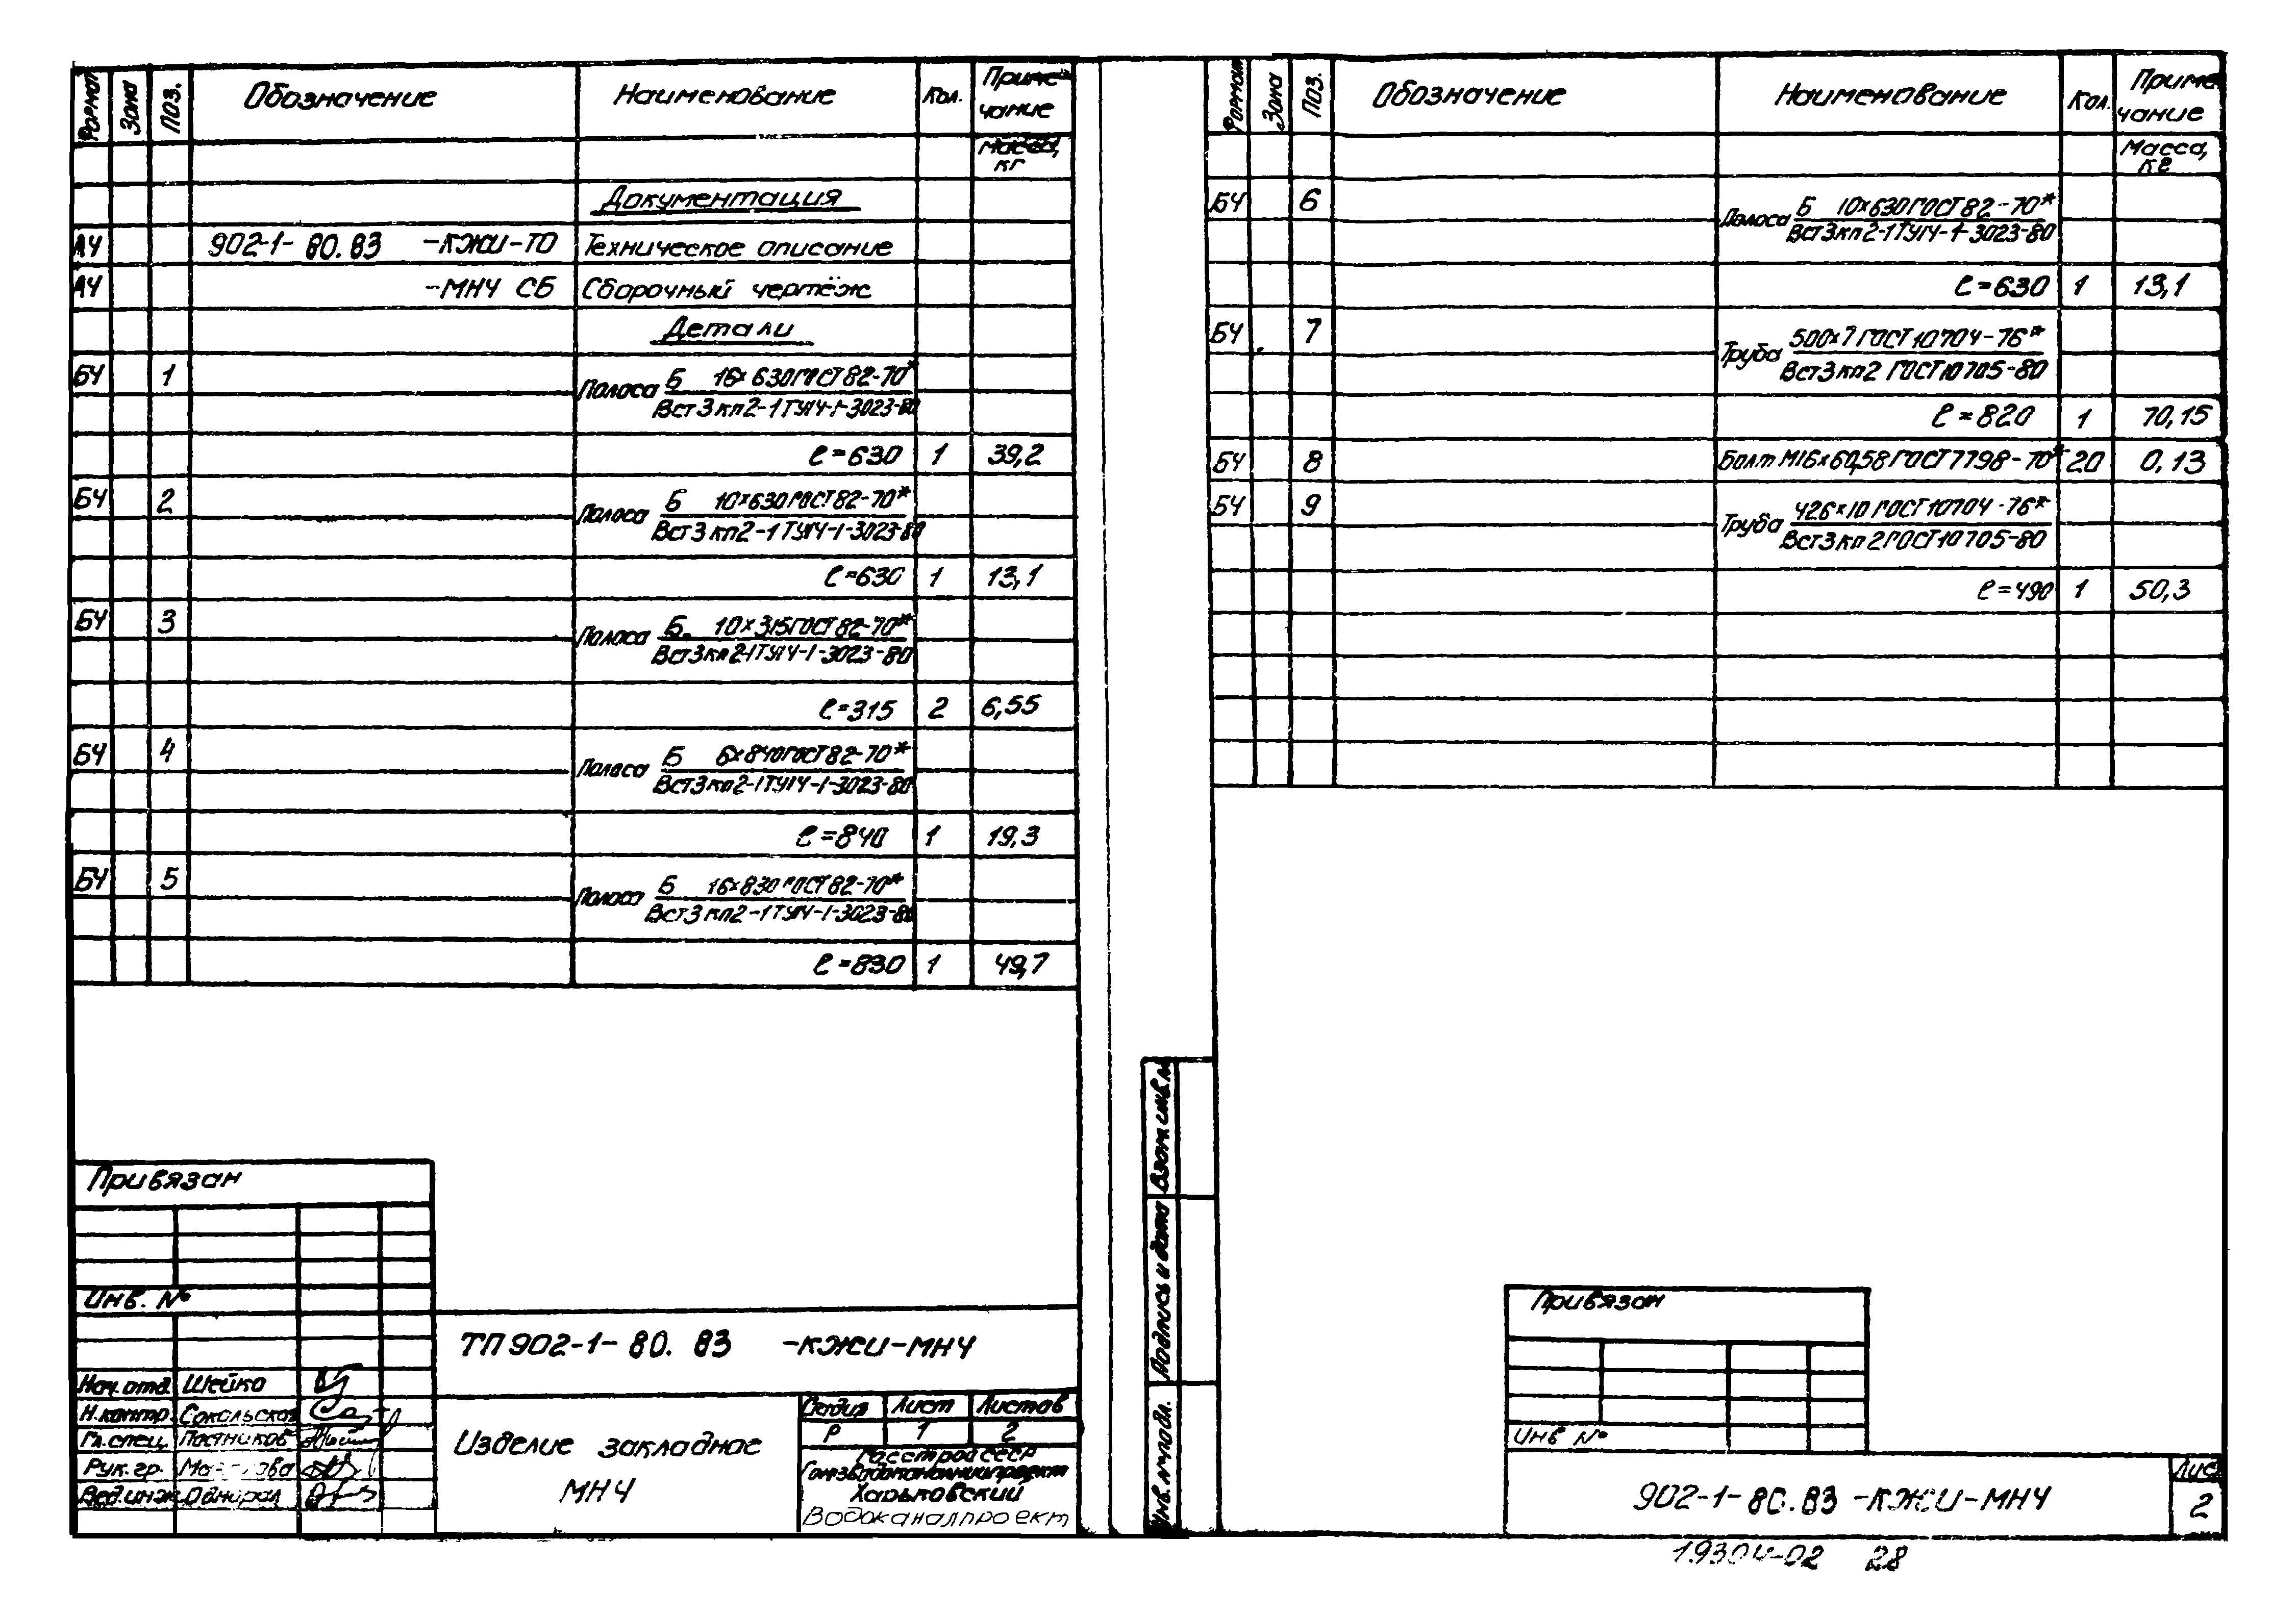 Формат Зона Поз. Обозначение Наименование Кол. Приме-
чание
Масса,
кг
Документация
А4 902-1-80.83 -КЖИ-ТО Техническое описание
А4 -МН4 СБ Сборочный чертёж
Детали
БЧ 1 Полоса Б 16×630 ГОСТ 82-70*
Вст3кп2-1 ТУ14-1-3023-80
ℓ=630 1 39,2
БЧ 2 Полоса Б 10×630 ГОСТ 82-70*
Вст3кп2-1 ТУ14-1-3023-80
ℓ=630 1 13,1
БЧ 3 Полоса Б. 10×315 ГОСТ 82-70*
Вст3кп2-1 ТУ14-1-3023-80
ℓ=315 2 6,55
БЧ 4 Полоса Б 6×840 ГОСТ 82-70*
Вст3кп2-1 ТУ14-1-3023-80
ℓ=840 1 19,3
БЧ 5 Полоса Б 16×830 ГОСТ 82-70*
Вст3кп2-1 ТУ14-1-3023-80
ℓ=830 1 49,7
Привязан
Инв. №
ТП 902-1-80.83 -КЖИ-МН4
Нач.отд. Шейко
Н.контр. Сокольская
Гл.спец. Постников
Рук.гр.
Вед.инж. Однорал
Изделие закладное
МН4
Стадия Лист Листов
Р 1 2
Госстрой СССР
Союзводоканалниипроект
Харьковский
Водоканалпроект
Формат Зона Поз. Обозначение Наименование Кол. Приме
чание
Масса,
кг
БЧ 6 Полоса Б 10×630 ГОСТ 82-70*
Вст3кп2-1 ТУ14-1-3023-80
ℓ=630 1 13,1
БЧ 7 Труба 500×7 ГОСТ 10704-76*
Вст3кп2 ГОСТ 10705-80
ℓ=820 1 70,15
БЧ 8 Болт М16×60,58 ГОСТ 7798-70* 20 0,13
БЧ 9 Труба 426×10 ГОСТ 10704-76*
Вст3кп2 ГОСТ 10705-80
ℓ=490 1 50,3
Взам. инв. №
Подпись и дата
Инв. № подл.
Привязан
Инв №
902-1-80.83 -КЖИ-МН4
Лист
2
19304-02 28